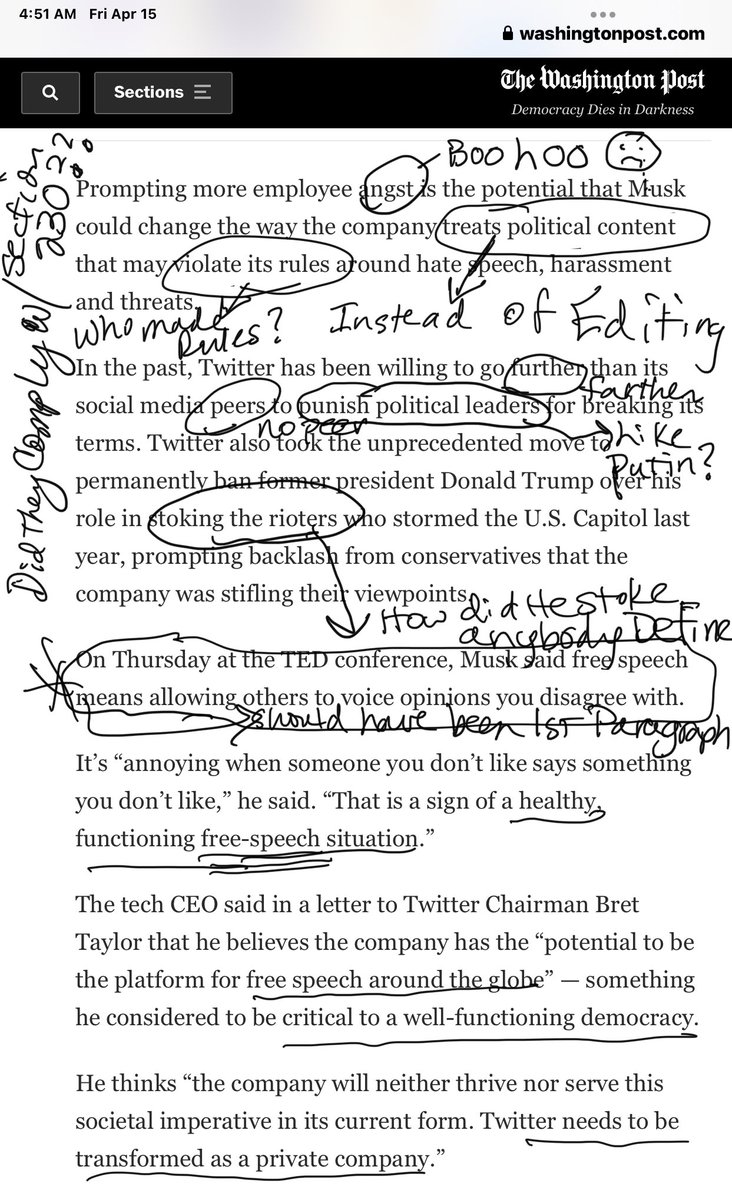 4:51 AM Fri Apr 15
washingtonpost.com
Sections
The Washington Post
Democracy Dies in Darkness
Did They Comply w/ Section 230??
Boo hoo
Prompting more employee angst is the potential that Musk
could change the way the company treats political content
that may violate its rules around hate speech, harassment
and threats.
who made Rules?
Instead of Editing
In the past, Twitter has been willing to go further than its
farther
social media peers to punish political leaders for breaking its
no peer
like Putin?
terms. Twitter also took the unprecedented move to
permanently ban former president Donald Trump over his
role in stoking the rioters who stormed the U.S. Capitol last
year, prompting backlash from conservatives that the
company was stifling their viewpoints.
How did He stoke
anybody Define
On Thursday at the TED conference, Musk said free speech
means allowing others to voice opinions you disagree with.
should have been 1st Paragraph
It’s “annoying when someone you don’t like says something
you don’t like,” he said. “That is a sign of a healthy,
functioning free-speech situation.”
The tech CEO said in a letter to Twitter Chairman Bret
Taylor that he believes the company has the “potential to be
the platform for free speech around the globe” — something
he considered to be critical to a well-functioning democracy.
He thinks “the company will neither thrive nor serve this
societal imperative in its current form. Twitter needs to be
transformed as a private company.”